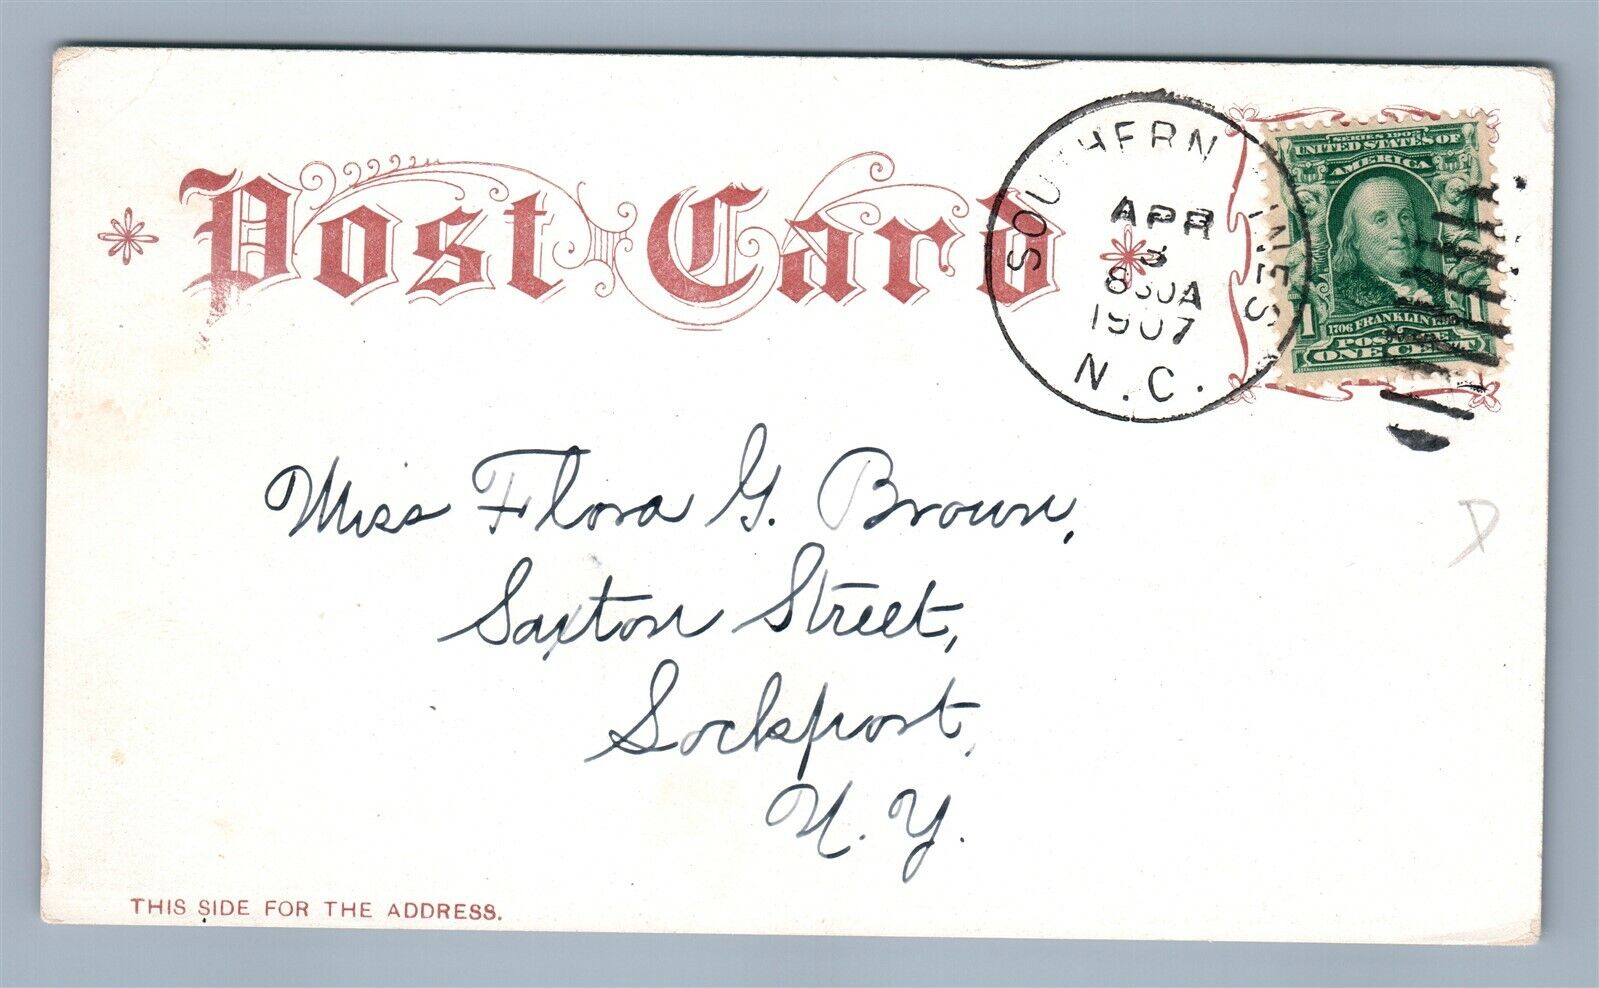 Post Card
SOUTHERN PINES
APR
3
830A
1907
N.C.
SERIES 1902
UNITED STATES OF
AMERICA
1706 FRANKLIN
POSTAGE
1 ONE CENT 1
Miss Flora G. Brown,
Saxton Street,
Lockport,
N. Y.
D
THIS SIDE FOR THE ADDRESS.